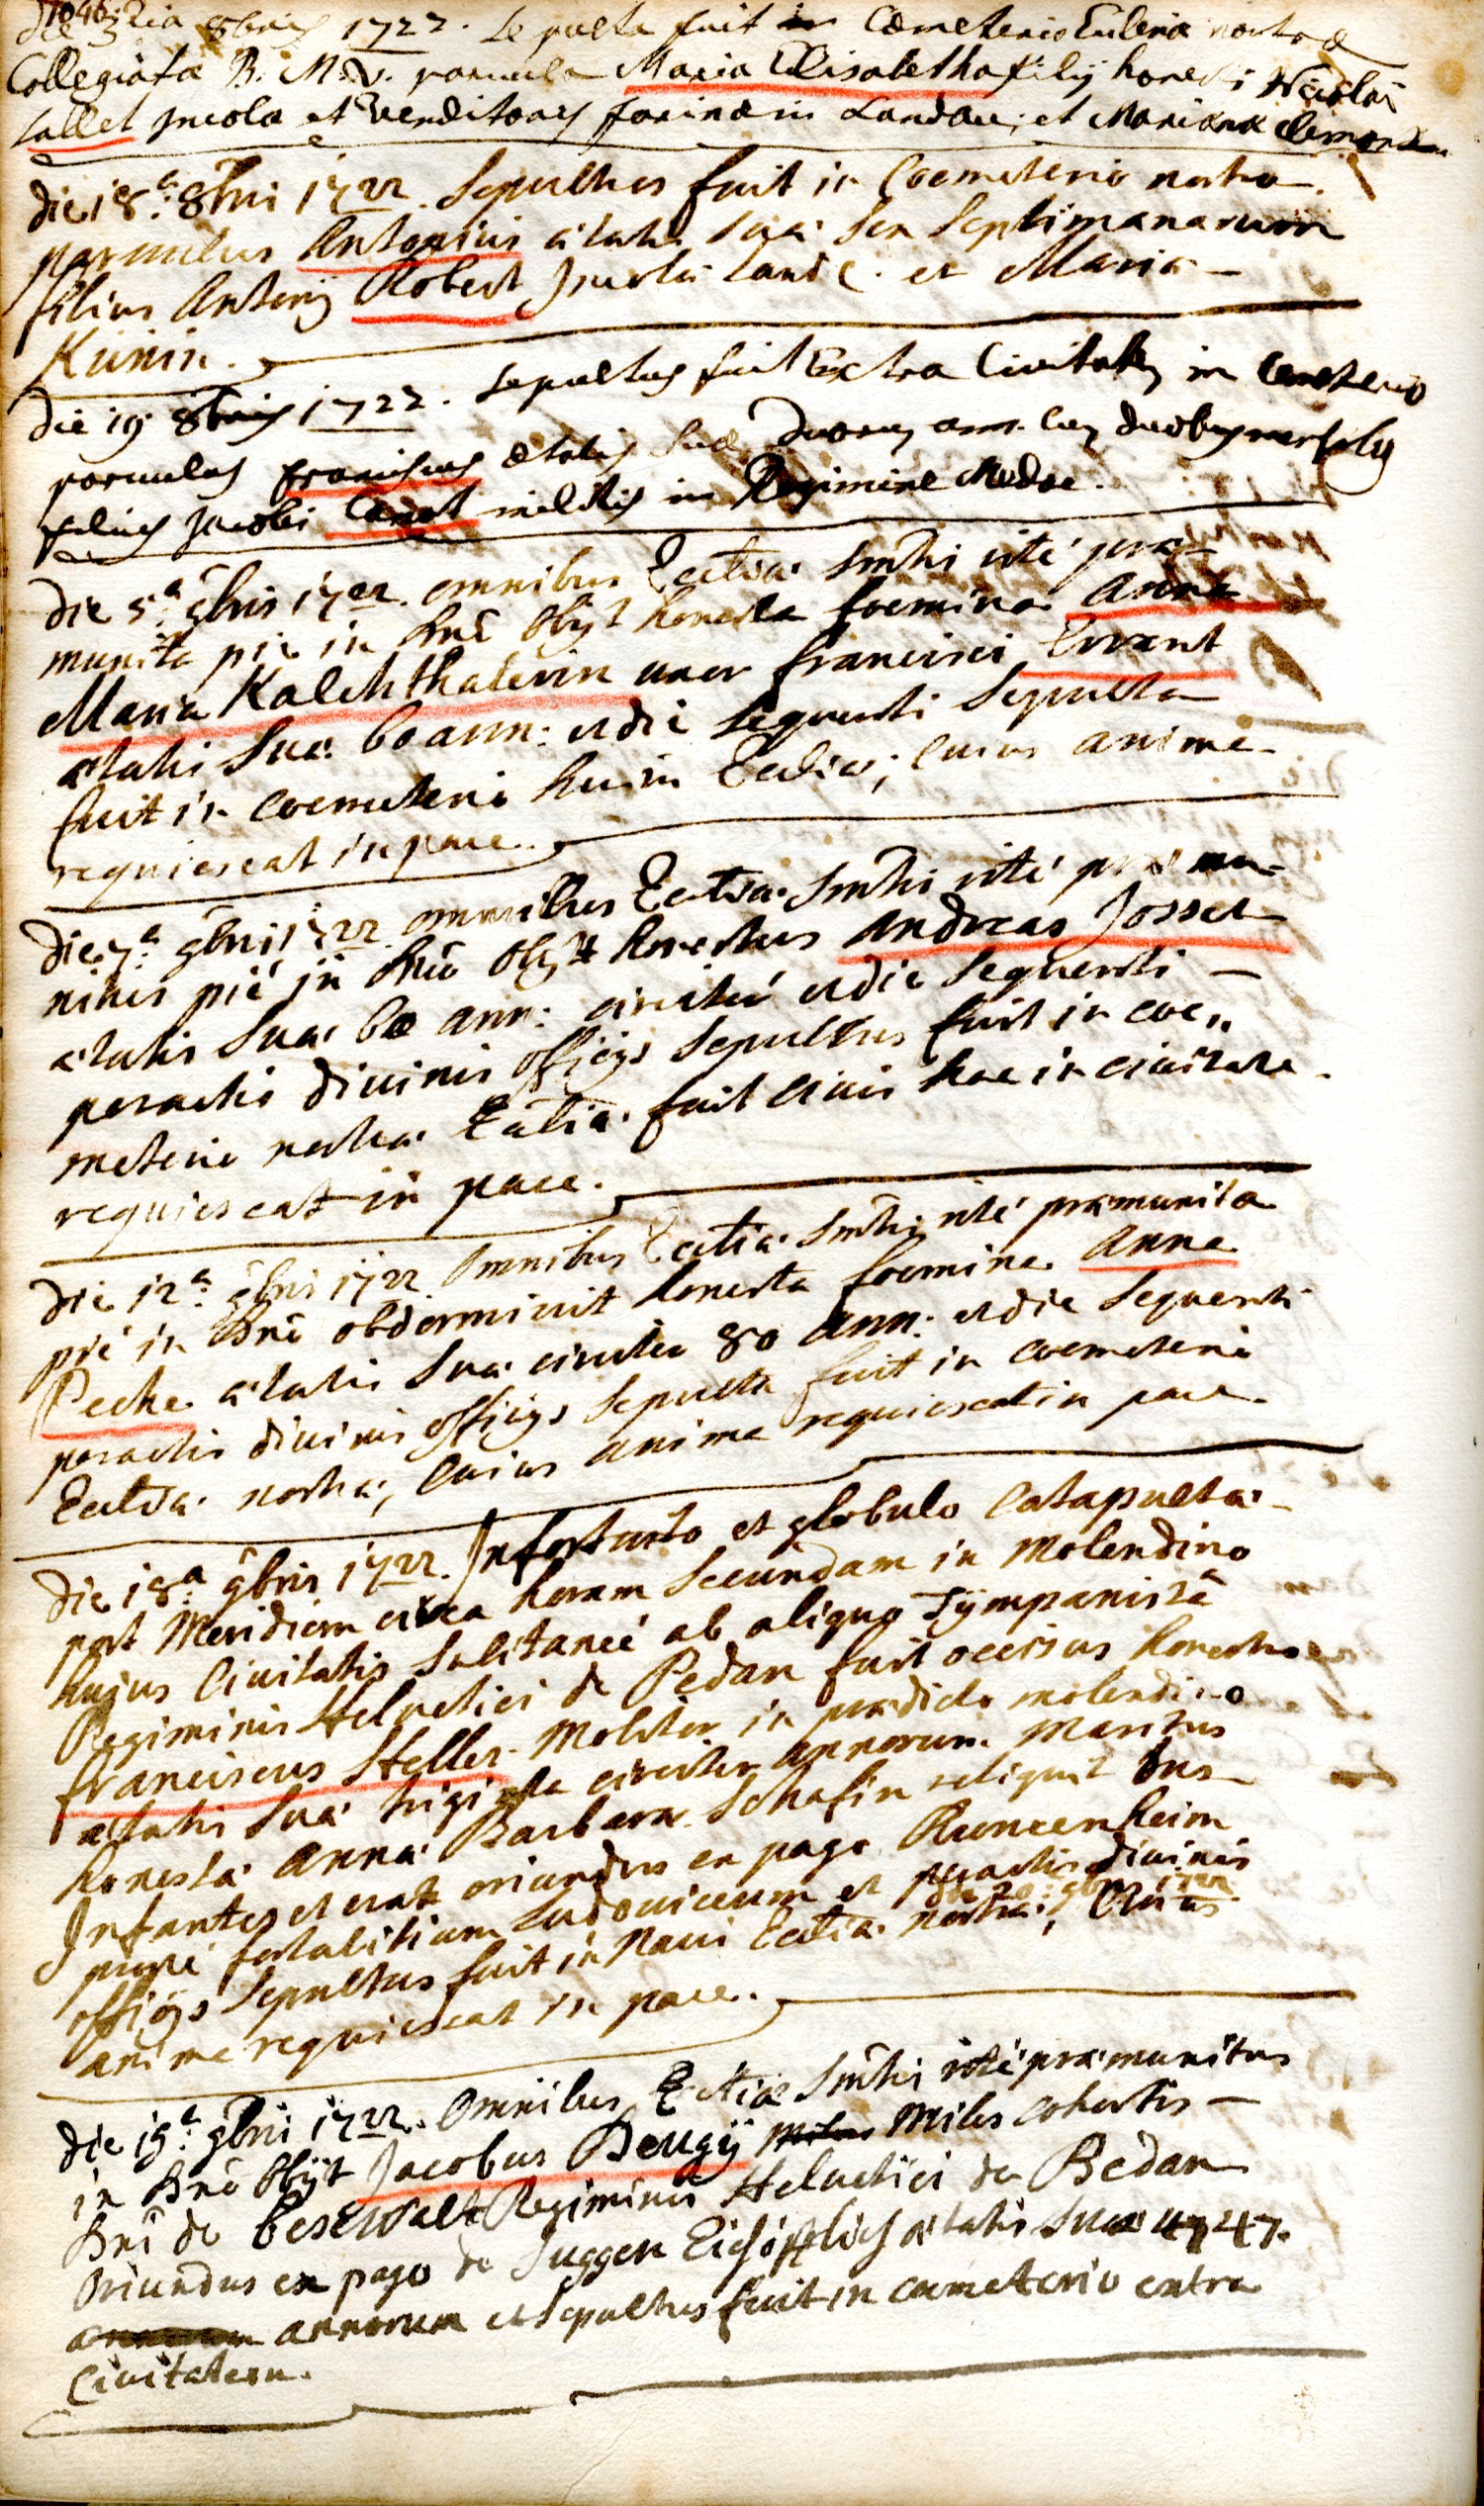 die 8bris 1722. Sepulta fuit in Cœmeterio Ecclesiæ nostræ
Collegiatæ B. M. V. parvula Maria Elisabetha filij honesti Nicolai
Sallet Incolæ et venditoris farinæ in Landau, et Marianæ
die 18.a 8bri 1722. Sepultus fuit in Coemeterio nostro
parvulus Antonius ætatis Suæ Sex Septimanarum
filius Antonÿ Robert Incolæ Land. et Maria
Kunin.
die 19 8bris 1722. Sepultus fuit Extra Civitatem in Cemeterio
parvulus franciscus Ætatis Suæ Duorum ann. cum duobus mensibus
filius Jacobi Canet militis in Regimine Medoc.
die 5.a 9bris 1722. omnibus Ecclîæ Smtîs rité præ-
munita piè in Dno Obÿt honesta foemina Anna
Maria Kalchthalerin uxor francisci Errant
ætatis Suæ 60 ann: et die sequenti Sepulta
fuit in coemeterio huius Ecclîæ; Cuius anima
requiescat in pace.
die 7.a 9bris 1722 omnibus Ecclîæ Smtîs rité præmu-
nitus pié in Dno Obÿt honestus Andreas Josset
ætatis Suæ ann: circiter et die Sequenti
peractis divinis officÿs Sepultus fuit in coe„
meterio nostræ Ecclîæ. fuit Civis hac in civitate
requiescat in pace.
die 12.a 9bris 1722 Omnibus Ecclîæ Smtîs rité præmunita
pié in Dno obdormivit honesta foemina Anna
Peche ætatis Suæ circiter 80 ann: et die Sequenti
peractis divinis officÿs Sepulta fuit in coemeterio
Ecclîæ nostræ, Cuius anima requiescat in pace.
die 18.a 9bris 1722. Infortunio et globulo Catapultæ
post Meridiem circa horam Secundam in Molendino
hujus Civitatis Subitaneé ab aliquo Tÿmpanistâ
Regiminis Helvetici de Bedan fuit occisus honestus
franciscus Steller Molitor in prædicto molendino
ætatis Suæ triginta circiter annorum Maritus
honestæ Annæ Barbara Schafin reliquit duos
Infantes et erat oriundus ex pago Runcenheim
prope fortalitium Ludoviceum et peractis divinis
die 20: 9bris 1722
officÿs Sepultus fuit in Navi Ecclîæ nostræ, Cuius
anima requiescat in pace.
die 19.a 9bris 1722. Omnibus Ecclîæ Smtîs rité præmunitus
in Dno Obÿt Jacobus Bengÿ Miles cohortis
Dni de Besewalt Regiminis Helvetici de Bedan
Oriundus ex pago de ætatis Suæ 47.
annorum et Sepultus fuit in coemeterio extra
Civitatem.